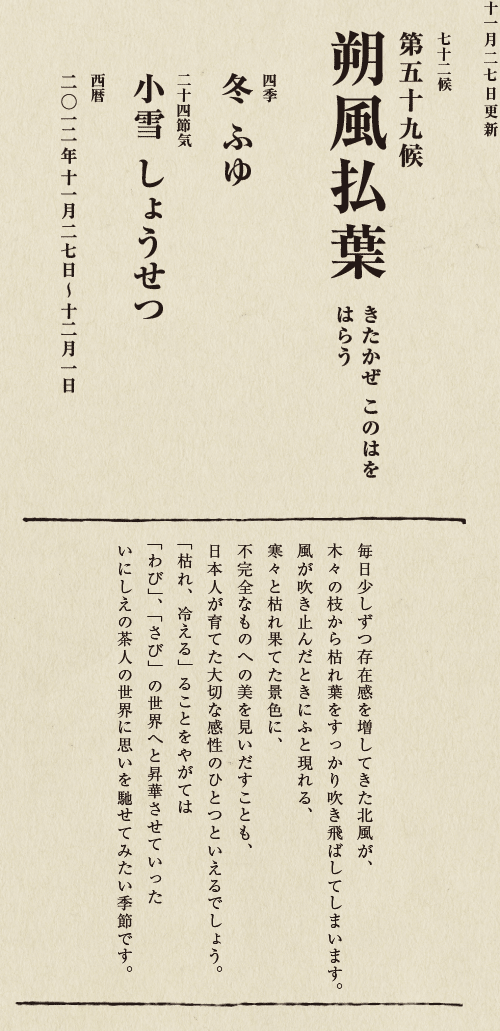 十一月二七日更新
七十二候
第五十九候
朔風払葉
きたかぜ このはを
はらう
四季
冬 ふゆ
二十四節気
小雪 しょうせつ
西暦
二〇一二年十一月二七日〜十二月一日
毎日少しずつ存在感を増してきた北風が、
木々の枝から枯れ葉をすっかり吹き飛ばしてしまいます。
風が吹き止んだときにふと現れる、
寒々と枯れ果てた景色に、
不完全なものへの美を見いだすことも、
日本人が育てた大切な感性のひとつといえるでしょう。
「枯れ、冷える」ることをやがては
「わび」、「さび」の世界へと昇華させていった
いにしえの茶人の世界に思いを馳せてみたい季節です。